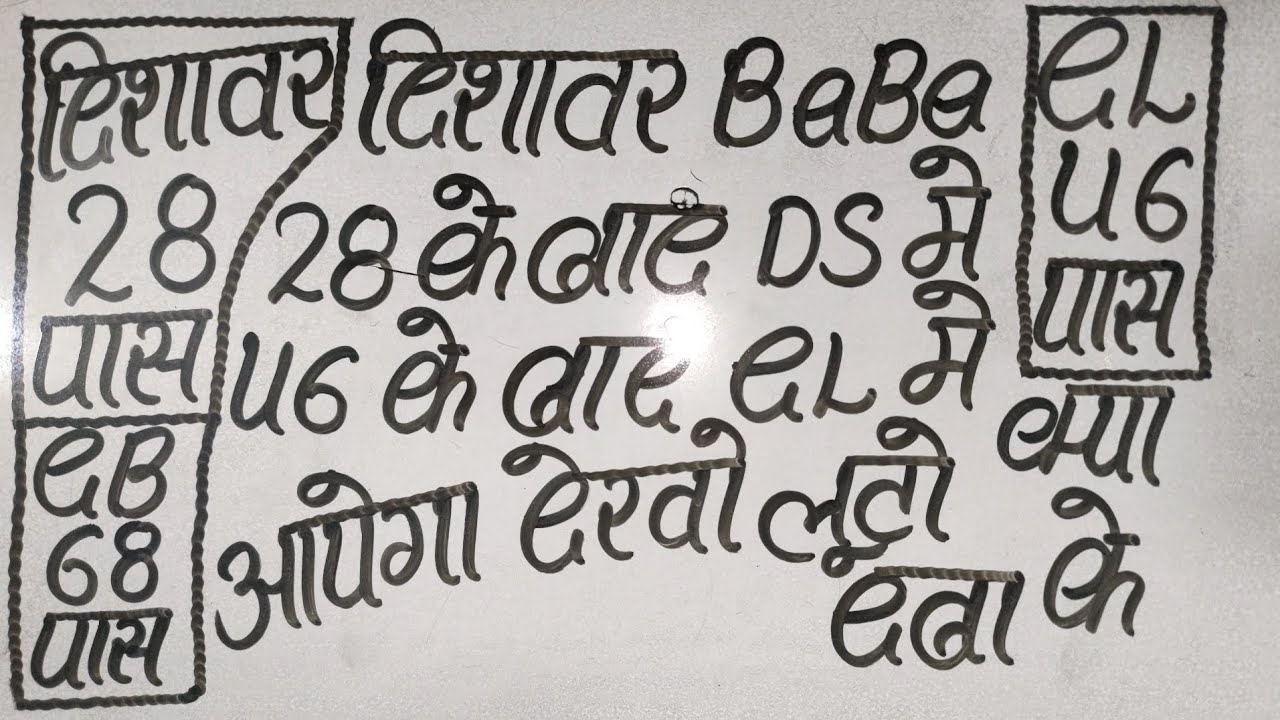 दिशावर
28
पास
GB
68
पास
दिशावर BaBa
28 के बाद DS मे
46 के बाद GL मे क्या
आयेगा देखो लूटो
दबा के
GL
46
पास